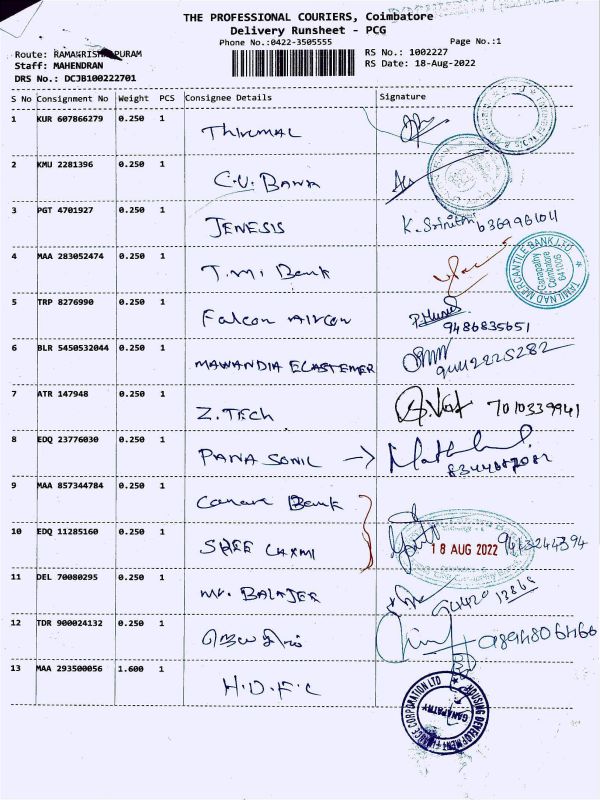 THE PROFESSIONAL COURIERS, Coimbatore
Delivery Runsheet - PCG
Phone No.:0422-3505555
Page No.:1
Route: RAMAKRISHNAPURAM
RS No.: 1002227
Staff: MAHENDRAN
RS Date: 18-Aug-2022
DRS No.: DCJB100222701
S No Consignment No Weight PCS Consignee Details Signature
1 KUR 607866279 0.250 1 THIRUMAL
2 KMU 2281396 0.250 1 C.U. BANK
3 PGT 4701927 0.250 1 JENESIS K. Srinithi 6369961011
4 MAA 283052474 0.250 1 T.M.i Bank
TAMILNAD MERCANTILE BANK LTD
Ganapathy
Coimbatore
641006
5 TRP 8276990 0.250 1 Falcon AIRCON
9486835651
6 BLR 5450532044 0.250 1 MAWANDIA ELASTEMER
7 ATR 147948 0.250 1 Z.TECH 7010339941
8 EDQ 23776030 0.250 1 PANA SONIC →
9 MAA 857344784 0.250 1 Canara Bank
10 EDQ 11285160 0.250 1 SHEE LAXMI
18 AUG 2022
11 DEL 70080295 0.250 1 Mr. BALAJER
12 TDR 900024132 0.250 1 9894806466
13 MAA 293500056 1.600 1 H.D.F.C
HOUSING DEVELOPMENT FINANCE CORPORATION LTD
GANAPATHY